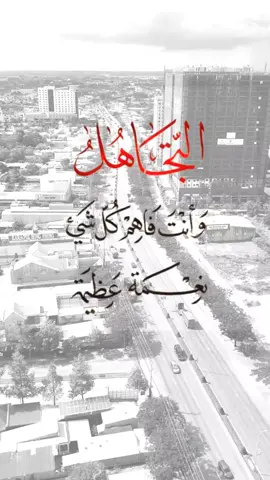 التَّجَاهُلُ
وَأنْتَ فَاهِمْ كُلّ شَيْئ
نِعْمَة عَظِيمَة